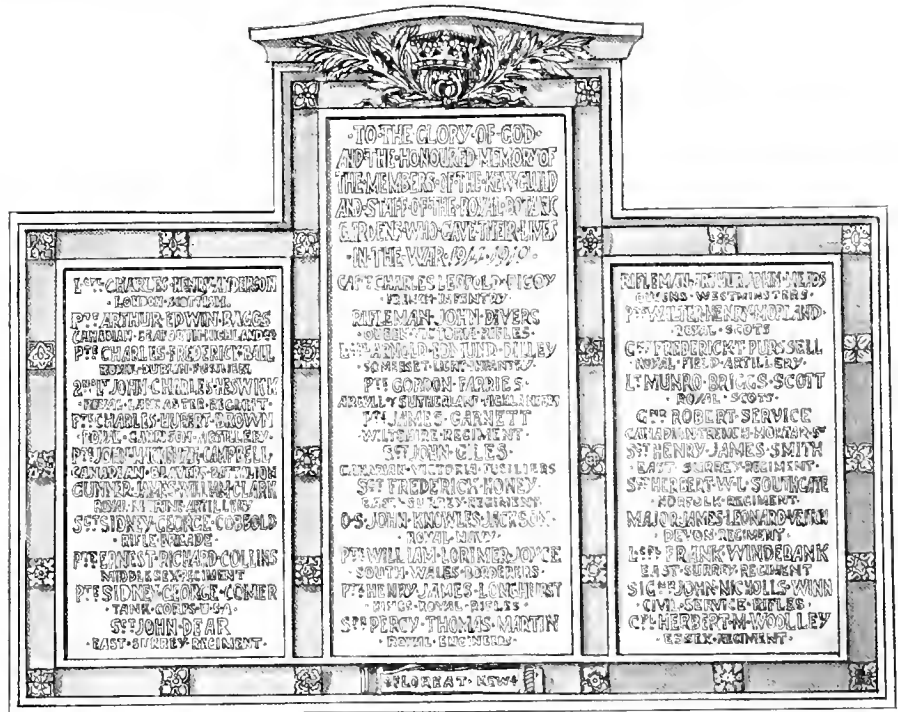 ·TO·THE·GLORY·OF·GOD·
AND·THE·HONOURED·MEMORY·OF
THE·MEMBERS·OF·THE·KEW·GUILD
AND·STAFF·OF·THE·ROYAL·BOTANIC
GARDENS·WHO·GAVE·THEIR·LIVES
·IN·THE·WAR·
CHARLES·HENRY·ANDERSON
·LONDON·SCOTTISH·
PTE ARTHUR·EDWIN·BAGGS
CANADIAN·SEAFORTH·HIGHLANDERS
PTE CHARLES·FREDERICK·BALL
ROYAL·DUBLIN·FUSILIERS
2ND LT JOHN·CHARLES·BESWICK
·ROYAL·LANCASTER·REGIMENT·
PTE CHARLES·HUBERT·BROWN
·ROYAL·GARRISON·ARTILLERY·
PTE CAMPBELL
CANADIAN· BATTALION
GUNNER·JAMES·WILLIAM·CLARK
ROYAL·MARINE·ARTILLERY
SGT SIDNEY·GEORGE·COBBOLD
·RIFLE·BRIGADE·
PTE ERNEST·RICHARD·COLLINS
MIDDLESEX·REGIMENT
PTE SIDNEY·GEORGE·COMER
·TANK·CORPS·U·S·A·
SGT JOHN·DEAR
·EAST·SURREY·REGIMENT·
CAPT CHARLES·LEOPOLD·DIGOY
·FRENCH·INFANTRY·
RIFLEMAN·JOHN·DIVERS
·QUEEN·VICTORIA·RIFLES·
ARNOLD·EDMUND·DILLEY
·SOMERSET·LIGHT·INFANTRY·
PTE GORDON·FARRIES
ARGYLL·&·SUTHERLAND·HIGHLANDERS
PTE JAMES·GARNETT
·WILTSHIRE·REGIMENT·
SGT JOHN·GILES·
CANADIAN·VICTORIA·FUSILIERS
SGT FREDERICK·HONEY·
·EAST·SURREY·REGIMENT·
O·S·JOHN·KNOWLES·JACKSON·
·ROYAL·NAVY·
PTE WILLIAM·LORIMER·JOYCE
·SOUTH·WALES·BORDERERS·
PTE HENRY·JAMES·LONGHURST
·KINGS·ROYAL·RIFLES·
PERCY·THOMAS·MARTIN
·ROYAL·ENGINEERS·
RIFLEMAN·ARTHUR·JOHN·MEADS
QUEENS·WESTMINSTERS·
PTE WALTER·HENRY·MORLAND·
·ROYAL·SCOTS·
GNR FREDERICK·T·PURSSELL
·ROYAL·FIELD·ARTILLERY·
LT MUNRO·BRIGGS·SCOTT
·ROYAL·SCOTS·
GNR ROBERT·SERVICE
CANADIAN·TRENCH·MORTAR·
SGT HENRY·JAMES·SMITH
·EAST·SURREY·REGIMENT·
SGT HERBERT·W·L·SOUTHGATE
·NORFOLK·REGIMENT·
MAJOR·JAMES·LEONARD·VEITCH
·DEVON·REGIMENT·
L·CPL FRANK·WINDEBANK
·EAST·SURREY·REGIMENT
SIGNR JOHN·NICHOLLS·WINN
·CIVIL·SERVICE·RIFLES·
CPL HERBERT·M·WOOLLEY
·ESSEX·REGIMENT·
·FLOREAT·KEW·